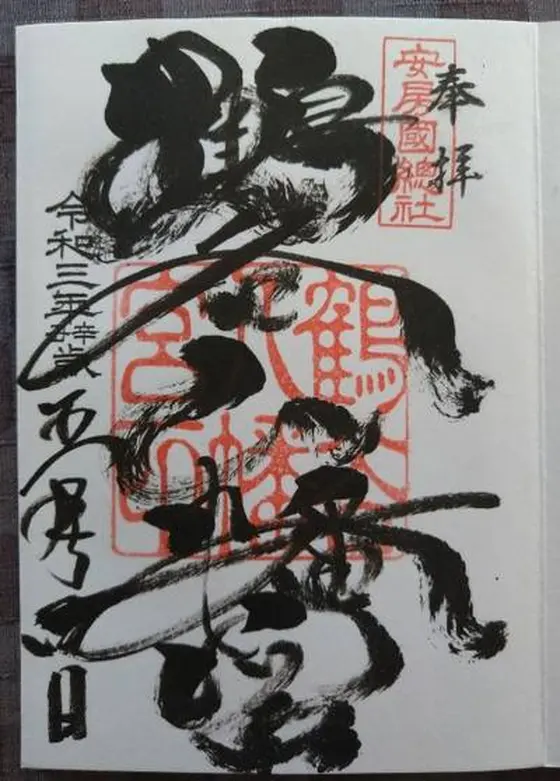 奉拝
安房國總社
鶴谷八幡宮
鶴谷
八幡
宮印
令和三年 歳 日